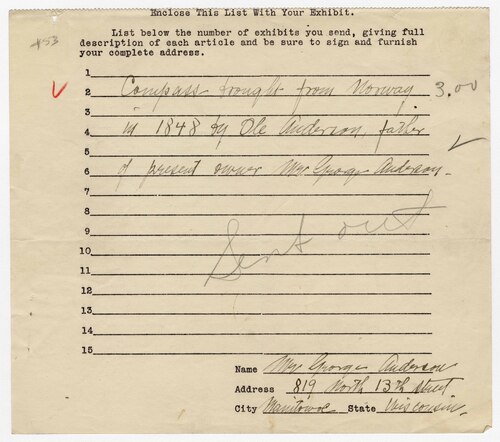 Enclose This List With Your Exhibit.
#53
List below the number of exhibits you send, giving full
description of each article and be sure to sign and furnish
your complete address.
1
2 Compass brought from Norway 3.00
3
4 in 1848 by Ole Anderson, father
5
6 of present owner Mrs George Anderson.
7
8
9 Sent out
10
11
12
13
14
15
Name Mrs George Anderson
Address 819 North 13th street
City Manitowoc State Wisconsin.